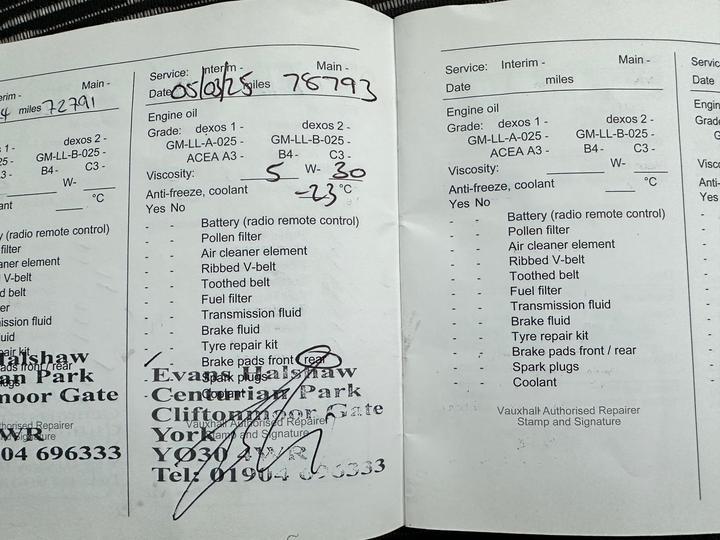 erim - Main -
4 miles 72791
s 1 - dexos 2 -
25 - GM-LL-B-025 -
3 - B4 - C3 -
W-
ant °C
y (radio remote control)
filter
aner element
V-belt
d belt
er
ission fluid
uid
pair kit
ads front / rear
ugs
Halshaw
an Park
moor Gate
thorised Repairer
nd Signature
WR
04 696333
Service: Interim - Main -
Date 05/03/25 miles 78793
Engine oil
Grade: dexos 1 - dexos 2 -
GM-LL-A-025 - GM-LL-B-025 -
ACEA A3 - B4 - C3 -
Viscosity: 5 W- 30
Anti-freeze, coolant -23 °C
Yes No
- - Battery (radio remote control)
- - Pollen filter
- - Air cleaner element
- - Ribbed V-belt
- - Toothed belt
- - Fuel filter
- - Transmission fluid
- - Brake fluid
- - Tyre repair kit
/ - Brake pads front / rear
- - Spark plugs
- - Coolant
Evans Halshaw
Centurian Park
Cliftonmoor Gate
York
YO30 4WR
Tel: 01904 696333
Vauxhall Authorised Repairer
Stamp and Signature
Service: Interim - Main -
Date miles
Engine oil
Grade: dexos 1 - dexos 2 -
GM-LL-A-025 - GM-LL-B-025 -
ACEA A3 - B4 - C3 -
Viscosity: W-
Anti-freeze, coolant °C
Yes No
- - Battery (radio remote control)
- - Pollen filter
- - Air cleaner element
- - Ribbed V-belt
- - Toothed belt
- - Fuel filter
- - Transmission fluid
- - Brake fluid
- - Tyre repair kit
- - Brake pads front / rear
- - Spark plugs
- - Coolant
Vauxhall Authorised Repairer
Stamp and Signature
Servic
Date
Engin
Grade
Visco
Anti-
Yes